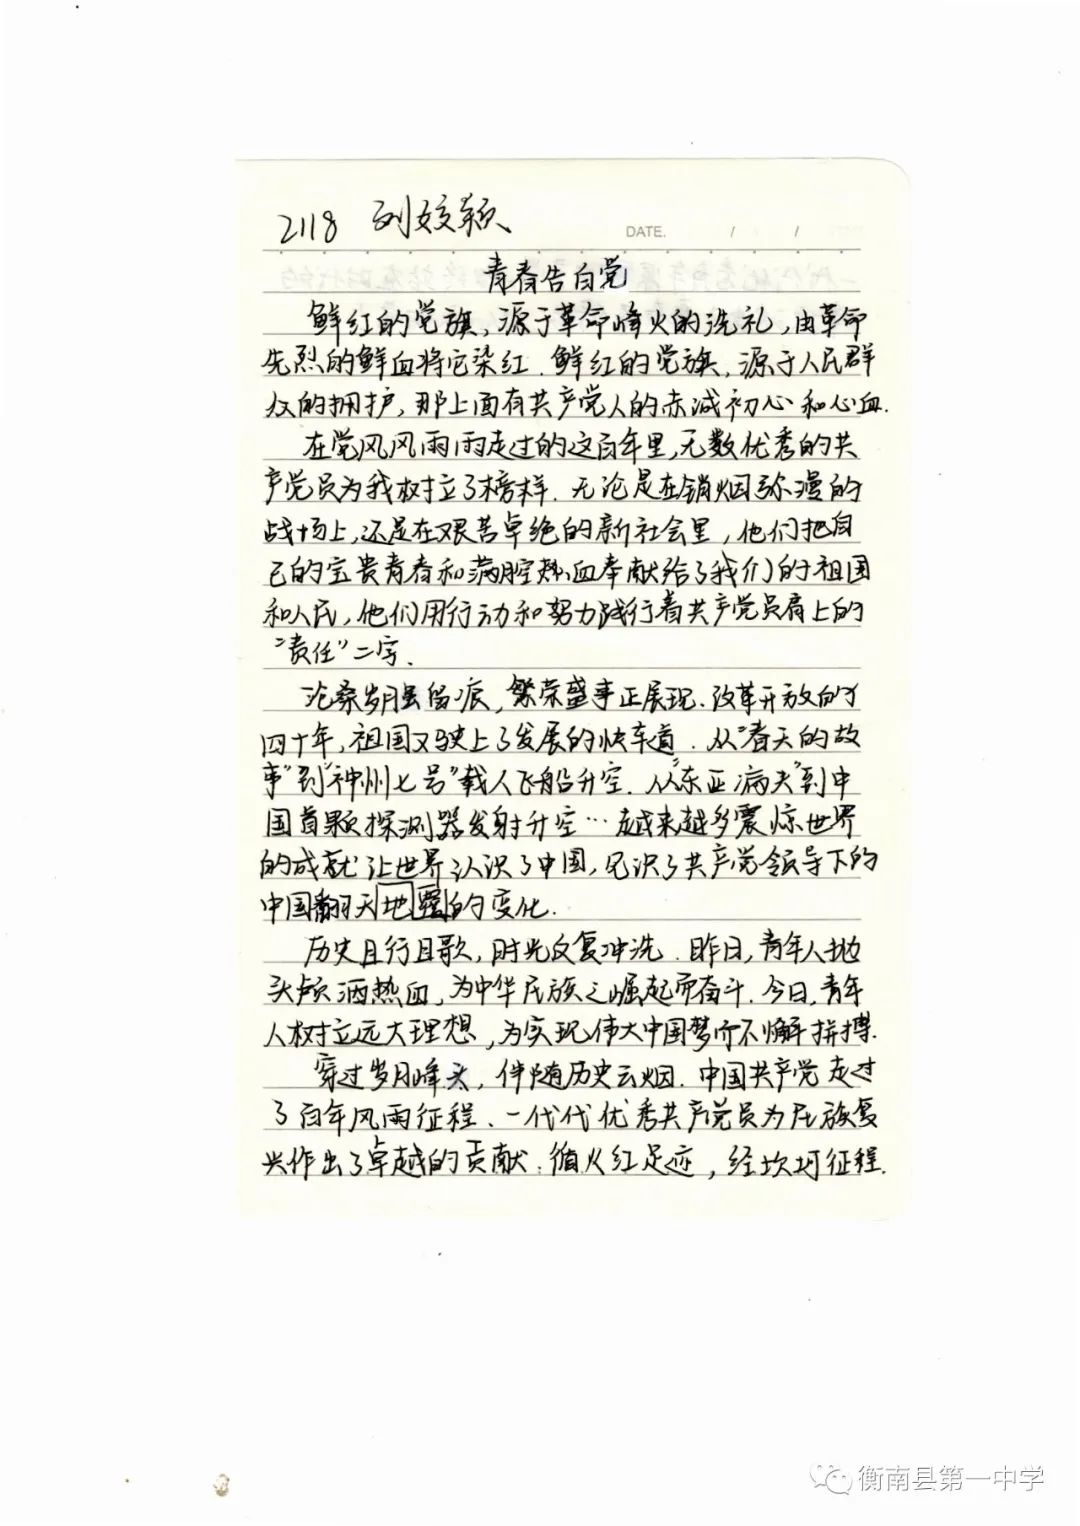 2118 刘姣颖
DATE. / /
青春告白党
鲜红的党旗，源于革命烽火的洗礼，由革命
先烈的鲜血将它染红.鲜红的党旗，源于人民群
众的拥护，那上面有共产党人的赤诚初心和心血.
在党风风雨雨走过的这百年里，无数优秀的共
产党员为我树立了榜样.无论是在销烟弥漫的
战场上，还是在艰苦卓绝的新社会里，他们把自
己的宝贵青春和满腔热血奉献给了我们的祖国
和人民，他们用行动和努力践行着共产党员肩上的
"责任"二字.
沧桑岁月虽留痕，繁荣盛事正展现.改革开放的
四十年，祖国又驶上了发展的快车道.从"春天的故
事"到"神州七号"载人飞船升空.从"东亚病夫"到中
国首颗探测器发射升空…越来越多震惊世界
的成就让世界认识了中国，见识了共产党领导下的
中国翻天地覆的变化.
历史且行且歌，时光反复冲洗.昨日，青年人抛
头颅洒热血，为中华民族之崛起而奋斗.今日，青年
人树立远大理想，为实现伟大中国梦而不懈拼搏.
穿过岁月峰头，伴随历史云烟.中国共产党走过
了百年风雨征程.一代代优秀共产党员为民族复
兴作出了卓越的贡献.循火红足迹，经坎坷征程.
衡南县第一中学